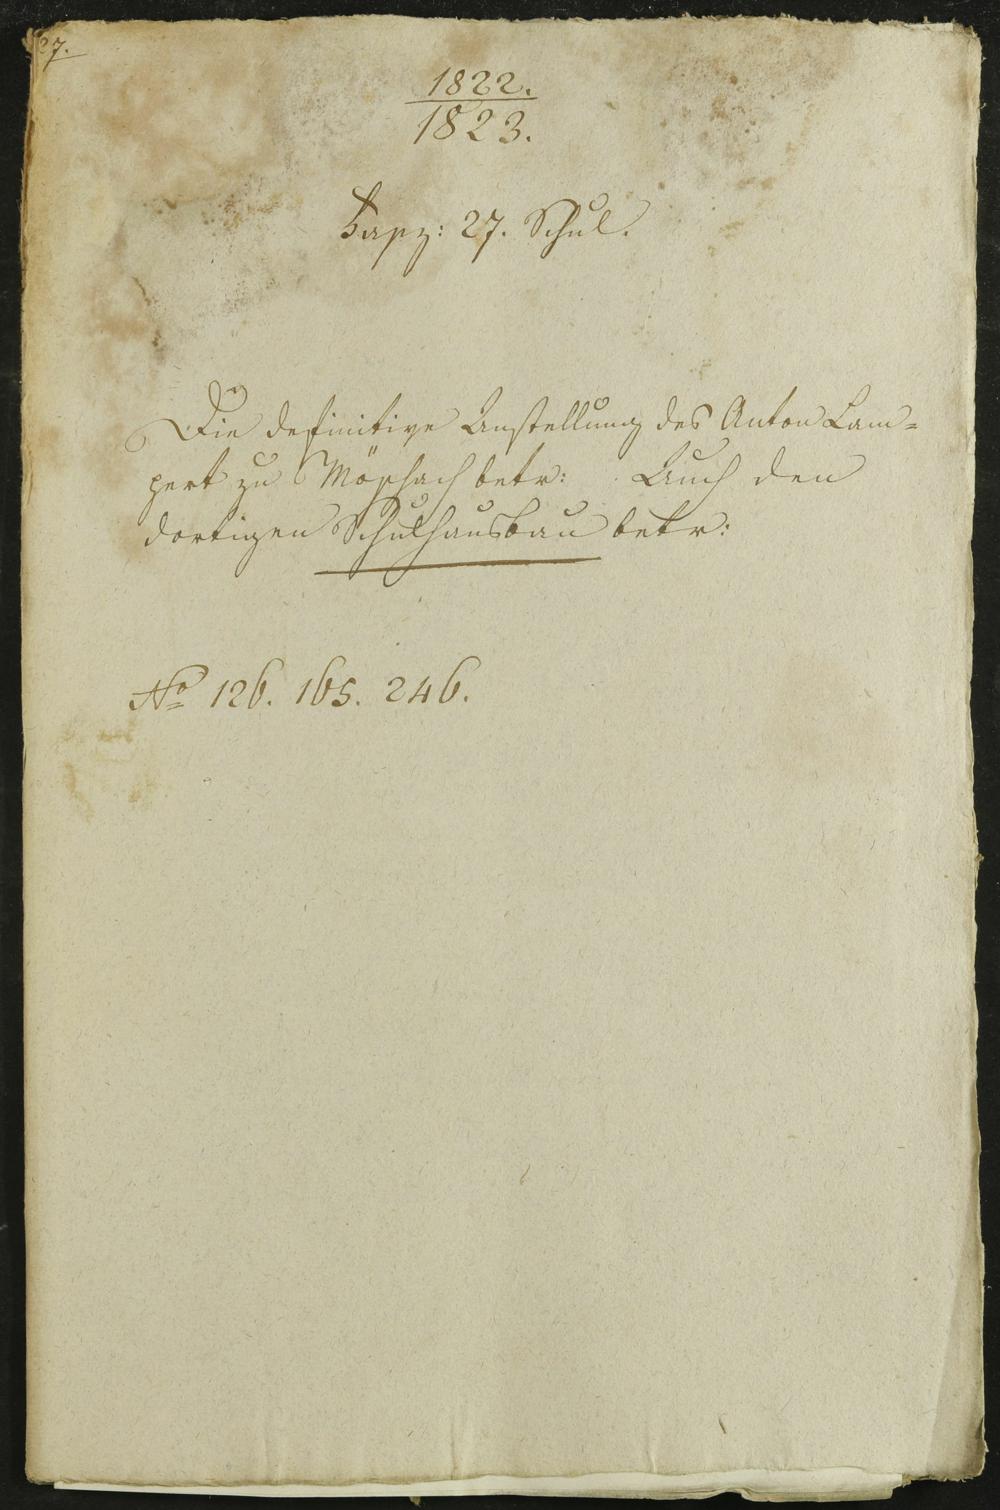 27.
1822.
1823.
27. Schul.
Die definitive Anstellung des Anton Lam=
pert zu betr: Auch den
dortigen Schulhausbau betr:
No 126. 165. 246.